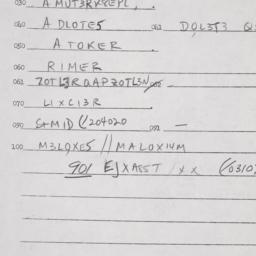 030 A MUT3RX8EPL,
040 A DLOTES 042 DOL3T3
050 A TOKER
060 RIMER
061 ZOTL3RQAPZOTL3N
070 LIXCI3R
090 S+MID (/204020 092 —
100 M3L9XE5 // MALOXI4M
901 EJXAEST /XX (/0310